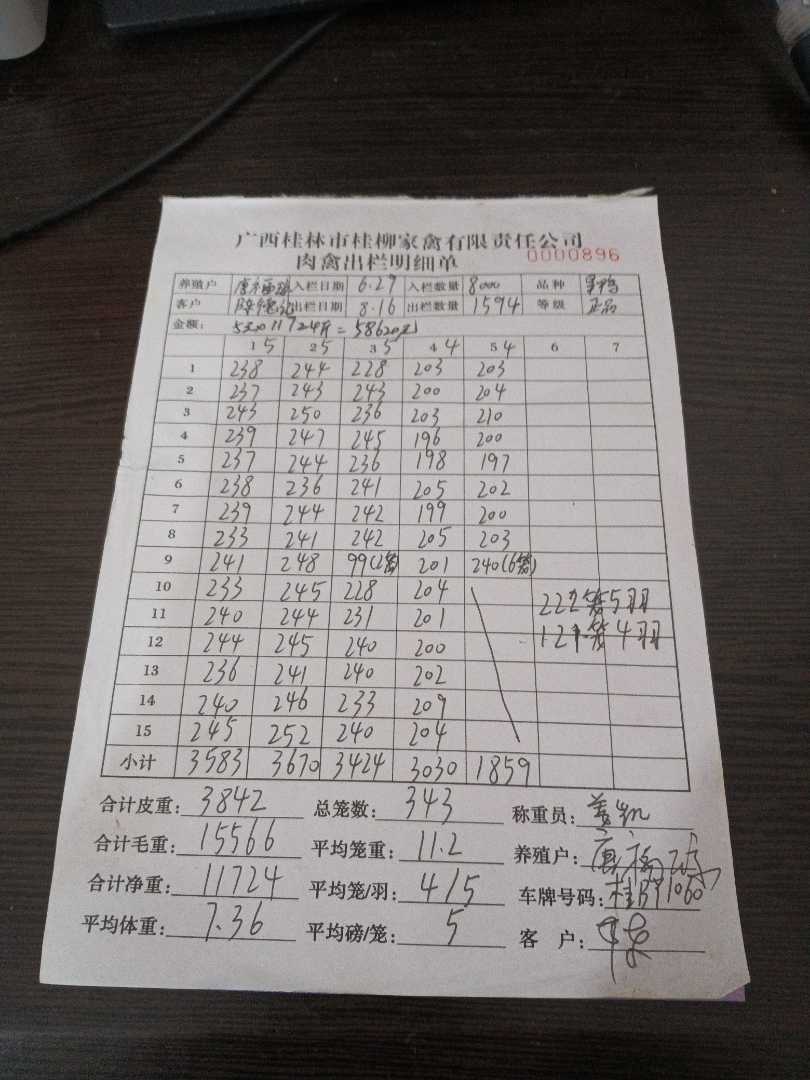 广西桂林市桂柳家禽有限责任公司
肉禽出栏明细单 0000896
养殖户 入栏日期 6.29 入栏数量 8000 品种
客户 出栏日期 8.16 出栏数量 1594 等级 正品
金额: 11724斤=58620元
1 5 2 5 3 5 4 4 5 4 6 7
1 238 244 228 203 203
2 237 243 243 200 204
3 243 250 236 203 210
4 239 247 245 196 200
5 237 244 236 198 197
6 238 236 241 205 202
7 239 244 242 199 200
8 233 241 242 205 203
9 241 248 99(2笼) 201 240(6笼)
10 233 245 228 204
11 240 244 231 201 222笼5羽
12 244 245 240 200 121笼4羽
13 236 241 240 202
14 240 246 233 209
15 245 252 240 204
小计 3583 3670 3424 3030 1859
合计皮重: 3842 总笼数: 343 称重员:
合计毛重: 15566 平均笼重: 11.2 养殖户:
合计净重: 11724 平均笼/羽: 4/5 车牌号码:
平均体重: 7.36 平均磅/笼: 5 客 户: